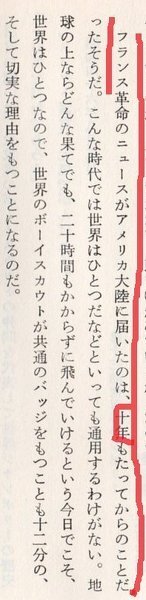 フランス革命のニュースがアメリカ大陸に届いたのは、十年もたってからのことだ
ったそうだ。こんな時代では世界はひとつだなどといっても通用するわけがない。地
球の上ならどんな果てでも、二十時間もかからずに飛んでいけるという今日でこそ、
世界はひとつなので、世界のボーイスカウトが共通のバッジをもつことも十二分の、
そして切実な理由をもつことになるのだ。